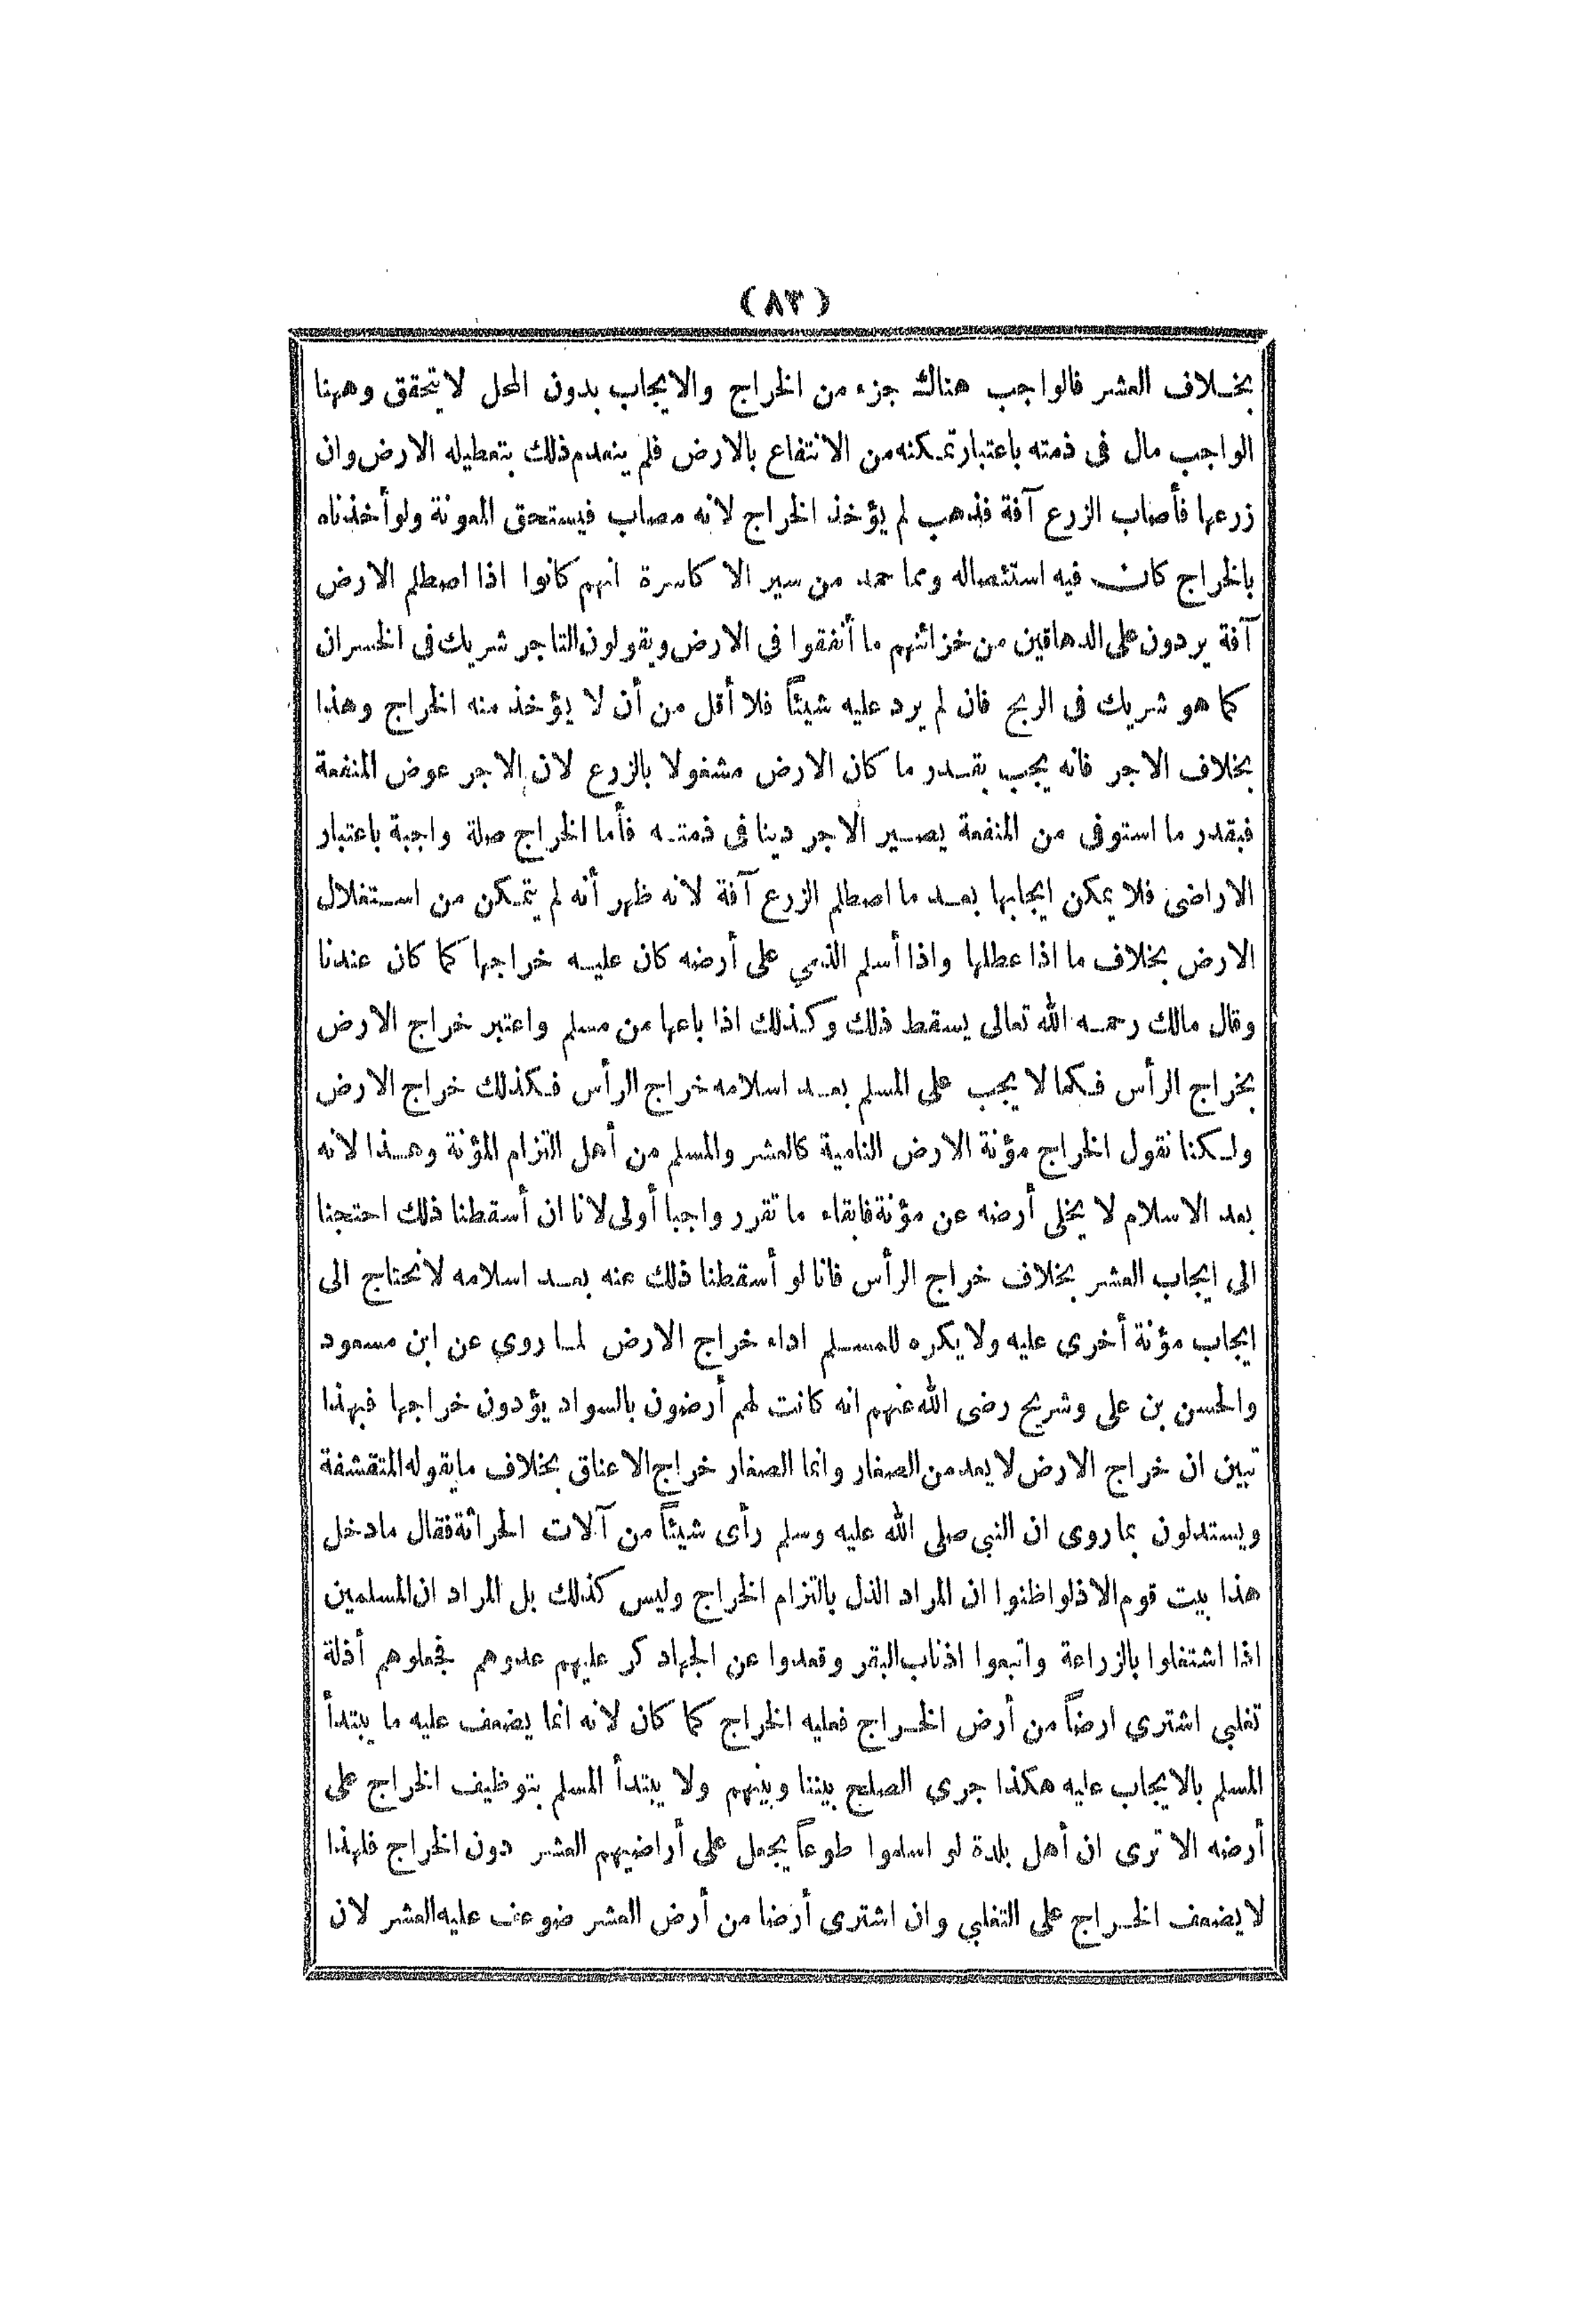 (٨٣)
بخلاف العشر فالواجب هناك جزء من الخراج والايجاب بدون المحل لا يتحقق وههنا
الواجب مال فى ذمته باعتبار تمكنه من الانتفاع بالارض فلم ينعدم ذلك بتعطيله الارض وان
زرعها فأصاب الزرع آفة فذهب لم يؤخذ الخراج لانه مصاب فيستحق المعونة ولو أخذناه
بالخراج كان فيه استئصاله ومما حمد من سير الاكاسرة انهم كانوا اذا اصطلم الارض
آفة يردون على الدهاقين من خزائنهم ما أنفقوا فى الارض ويقولون التاجر شريك فى الخسران
كما هو شريك فى الربح فان لم يرد عليه شيئاً فلا أقل من أن لا يؤخذ منه الخراج وهذا
بخلاف الاجر فانه يجب بقدر ما كان الارض مشغولا بالزرع لان الاجر عوض المنفعة
فبقدر ما استوفى من المنفعة يصير الاجر دينا فى ذمته فأما الخراج صلة واجبة باعتبار
الاراضى فلا يمكن ايجابها بعد ما اصطلم الزرع آفة لانه ظهر أنه لم يتمكن من استغلال
الارض بخلاف ما اذا عطلها واذا أسلم الذمي على أرضه كان عليه خراجها كما كان عندنا
وقال مالك رحمه الله تعالى يسقط ذلك وكذلك اذا باعها من مسلم واعتبر خراج الارض
بخراج الرأس فكما لا يجب على المسلم بعد اسلامه خراج الرأس فكذلك خراج الارض
ولكنا نقول الخراج مؤنة الارض النامية كالعشر والمسلم من أهل التزام المؤنة وهذا لانه
بعد الاسلام لا يخلى أرضه عن مؤنة فابقاء ما تقرر واجبا أولى لانا ان أسقطنا ذلك احتجنا
الى ايجاب العشر بخلاف خراج الرأس فانا لو أسقطنا ذلك عنه بعد اسلامه لا نحتاج الى
ايجاب مؤنة أخرى عليه ولا يكره للمسلم اداء خراج الارض لما روي عن ابن مسعود
والحسن بن على وشريح رضى الله عنهم انه كانت لهم أرضون بالسواد يؤدون خراجها فبهذا
تبين ان خراج الارض لا يعد من الصغار وانما الصغار خراج الاعناق بخلاف ما يقوله المتقشفة
ويستدلون بما روى ان النبي صلى الله عليه وسلم رأى شيئاً من آلات الحراثة فقال ما دخل
هذا بيت قوم الا ذلوا ظنوا ان المراد الذل بالتزام الخراج وليس كذلك بل المراد ان المسلمين
اذا اشتغلوا بالزراعة واتبعوا اذناب البقر وقعدوا عن الجهاد كر عليهم عدوهم فجعلوهم أذلة
تغلبي اشترى ارضاً من أرض الخراج فعليه الخراج كما كان لانه انما يضعف عليه ما يبتدأ
المسلم بالايجاب عليه هكذا جرى الصلح بيننا وبينهم ولا يبتدأ المسلم بتوظيف الخراج على
أرضه الا ترى ان أهل بلدة لو اسلموا طوعاً يجعل على أراضيهم العشر دون الخراج فلهذا
لا يضعف الخراج على التغلبي وان اشترى أرضا من أرض العشر ضوعف عليه العشر لان